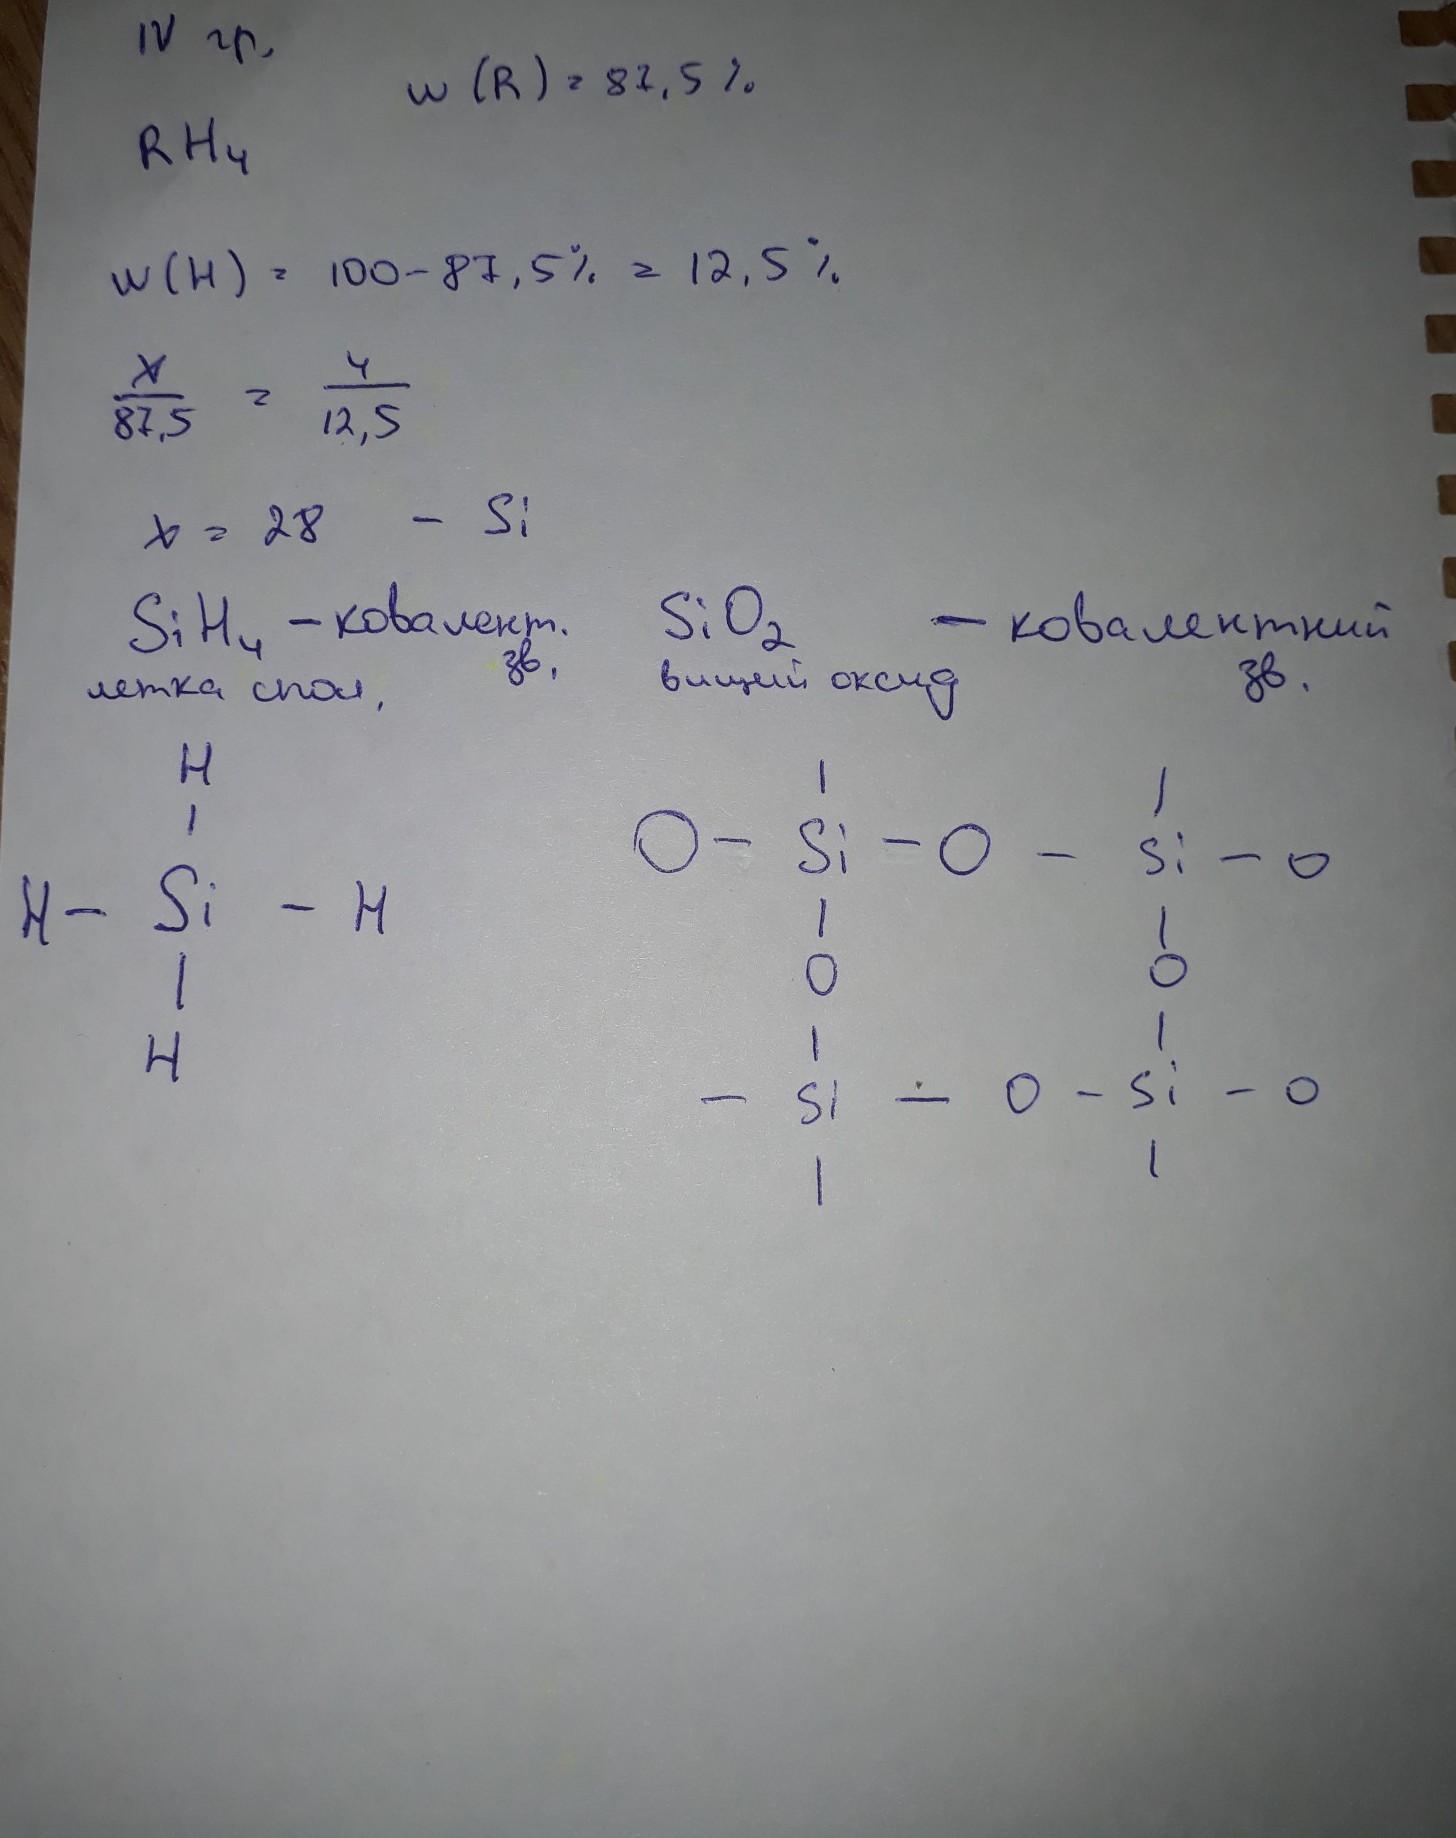 IV гр.
w (R) = 87,5 %
RH₄
w (H) = 100 - 87,5% = 12,5 %
x/87,5 = 4/12,5
x = 28 - Si
SiH₄ - ковалент. зв.
летка спол.
SiO₂ - ковалентний зв.
вищий оксид
H
|
H - Si - H
|
H
| |
O - Si - O - Si - O
| |
O O
| |
- Si - O - Si - O
| |